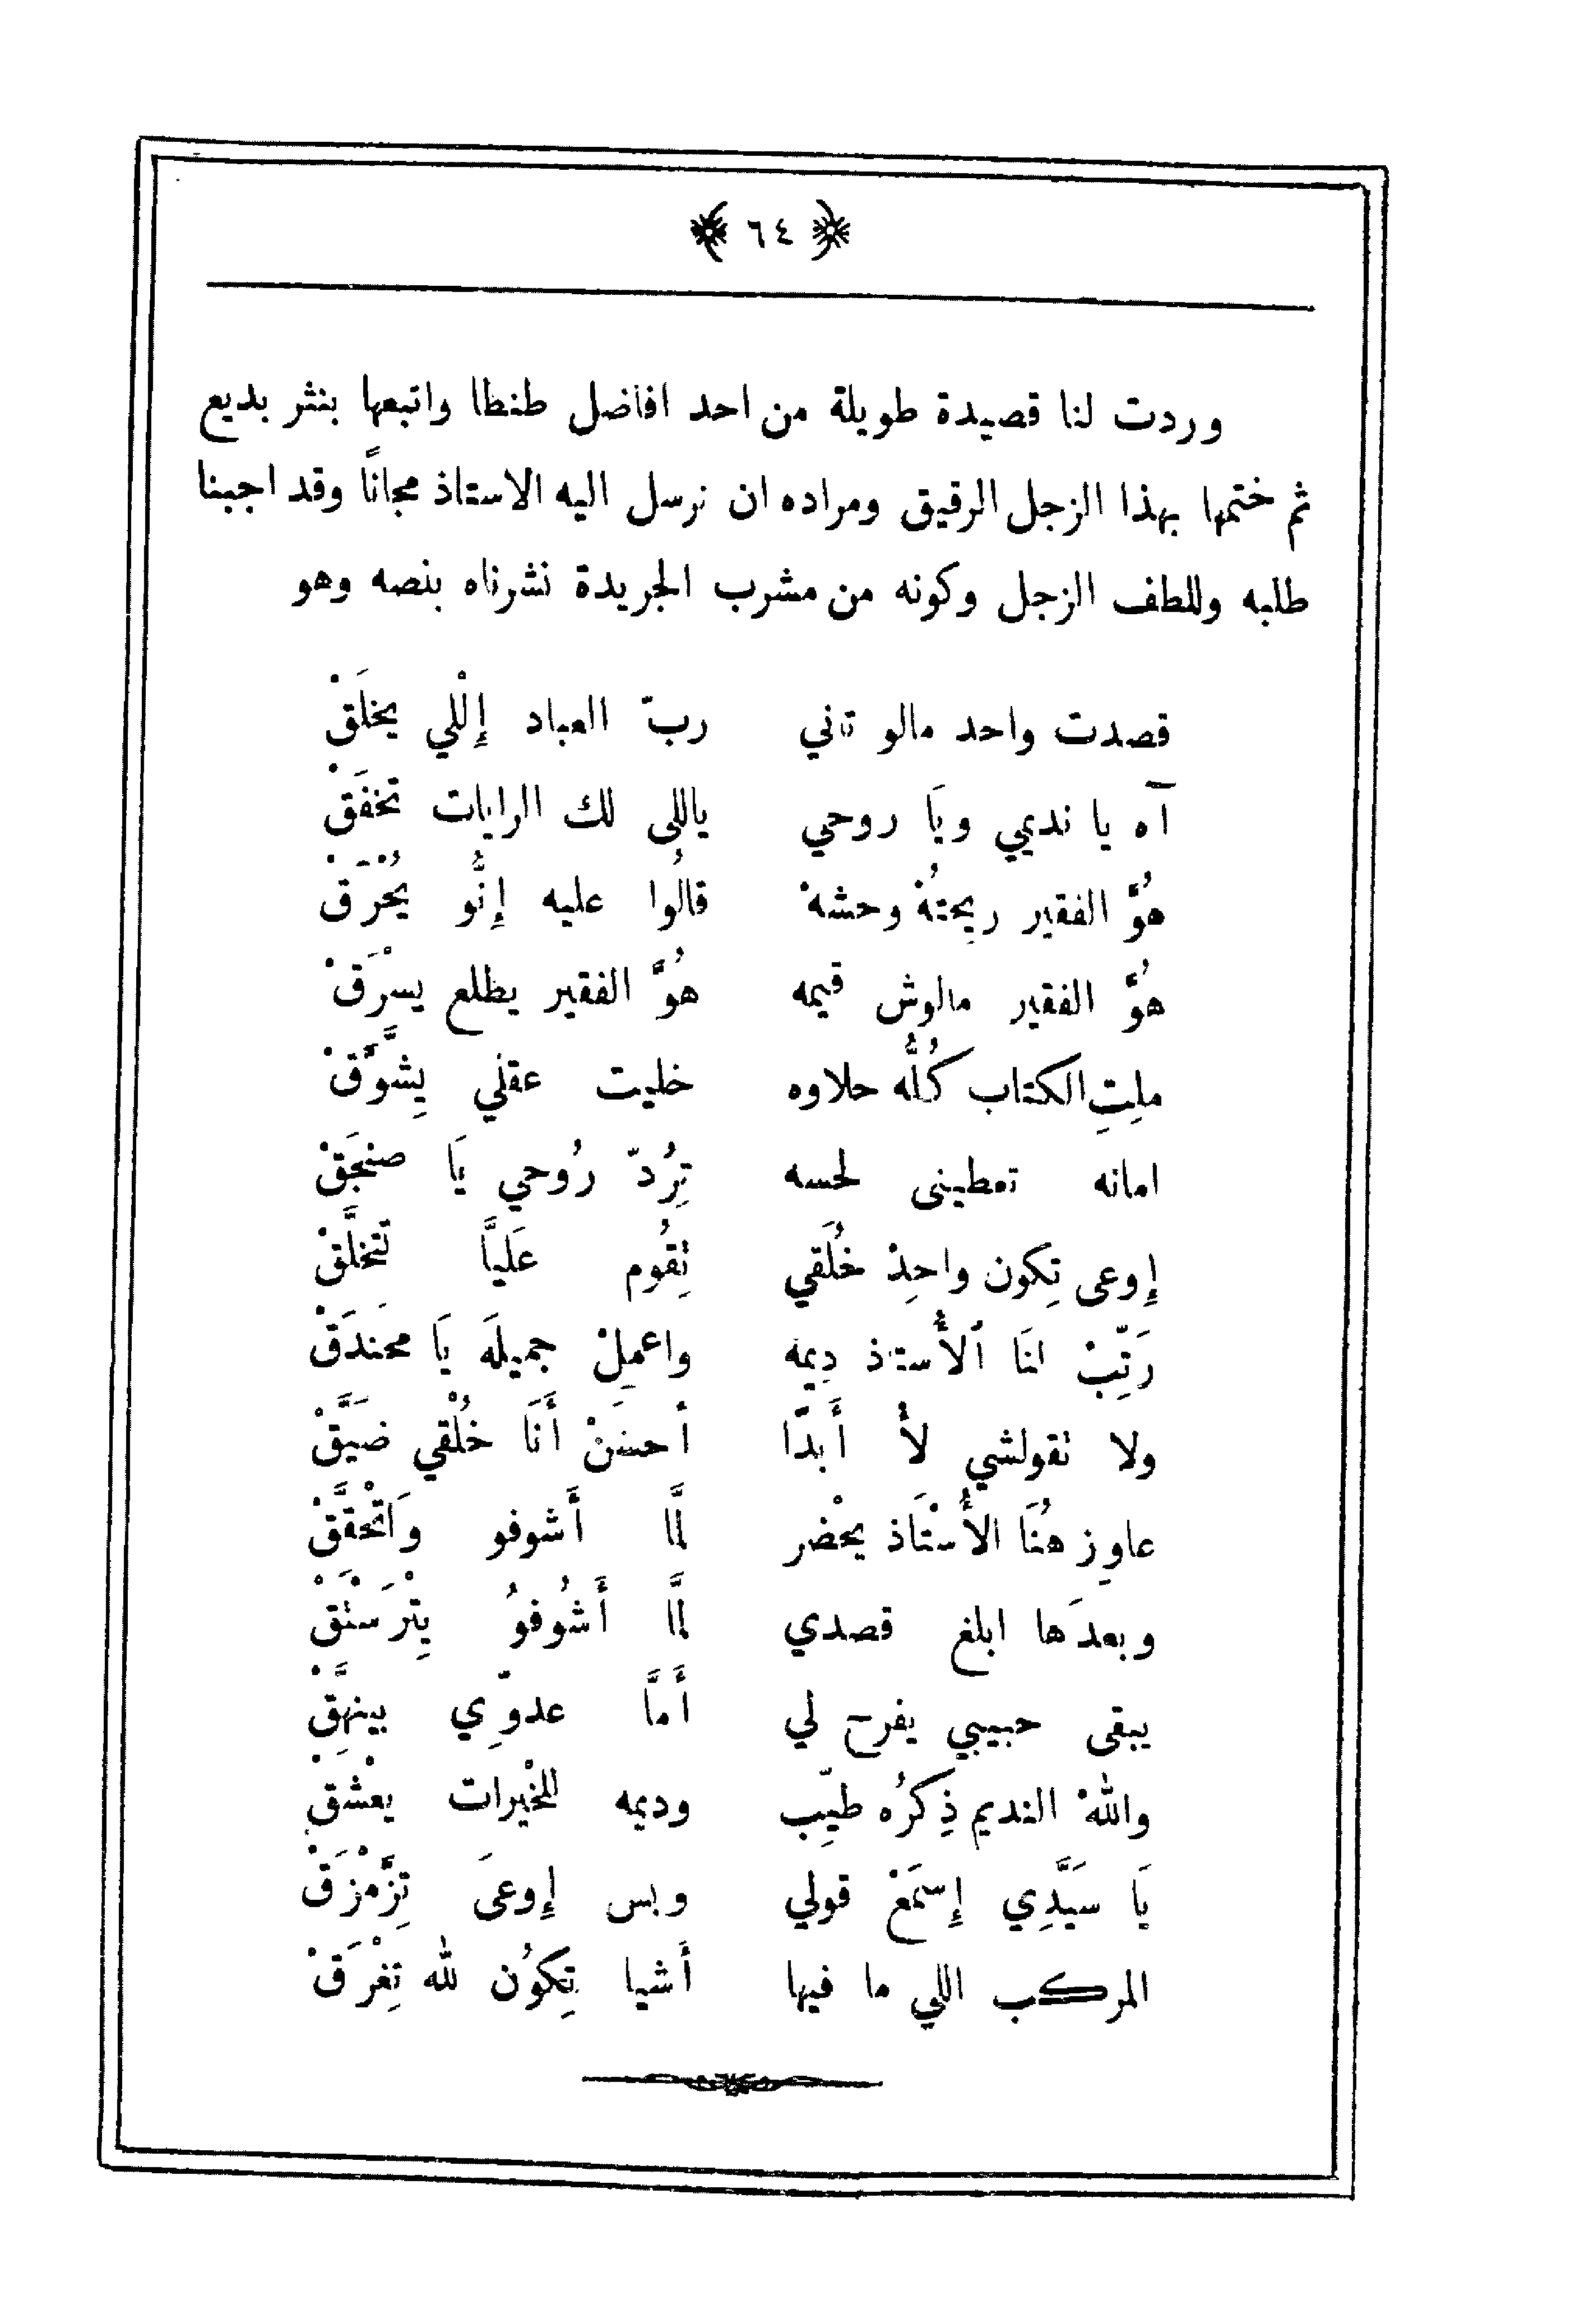 ﴿ ٦٤ ﴾
وردت لنا قصيدة طويلة من احد افاضل طنطا واتبعها بنثر بديع
ثم ختمها بهذا الزجل الرقيق ومراده ان نرسل اليه الاستاذ مجاناً وقد اجبنا
طلبه وللطف الزجل وكونه من مشرب الجريدة نشرناه بنصه وهو
قصدت واحد مالو تاني ربّ العباد إِلْلي يخلَقْ
آه يا نديمي ويَا روحي ياللى لك الرايات تخفَقْ
هُوَّ الفقير ريحتُهْ وحشهْ قالُوا عليه إِنُّو يُحْرَقْ
هُوَّ الفقير مالوش قيمه هُوَّ الفقير يطلع يسْرَقْ
ملِتِ الكتاب كُلُّه حلاوه خليت عقلي يِشَّوَّقْ
امانه تعطينى لحسه تِرُدّ رُوحي يَا صنجَقْ
إِوعى تِكون واحِدْ خُلَقي تِقُوم عَليَّا تتخلَّقْ
رَتِّبْ لنَا ألأُستاذ دِيمه واعمِلْ جميلَه يَا محَندَقْ
ولا تقولشي لأْ أَبدًا أحسَنْ أَنَا خُلْقي ضَيَّقْ
عاوِز هُنَا الأُسْتَاذ يحْضر لمَّا أَشوفو وَاتْحقَّقْ
وبعدَها ابلغ قصدي لمَّا أَشُوفوُ يِتْرَسْتَقْ
يبقى حبيبي يفرح لي أَمَّا عدوّي بينهَّقْ
واللهْ النديم ذِكرُه طيِّب وديمه للخْيرات يعْشَقْ
يَا سَيَّدِي إِسمَعْ قولي وبس إِوعىَ تِزَّمْزَقْ
المركب اللي ما فيها أَشيا تِكوُن لله تِغْرَقْ